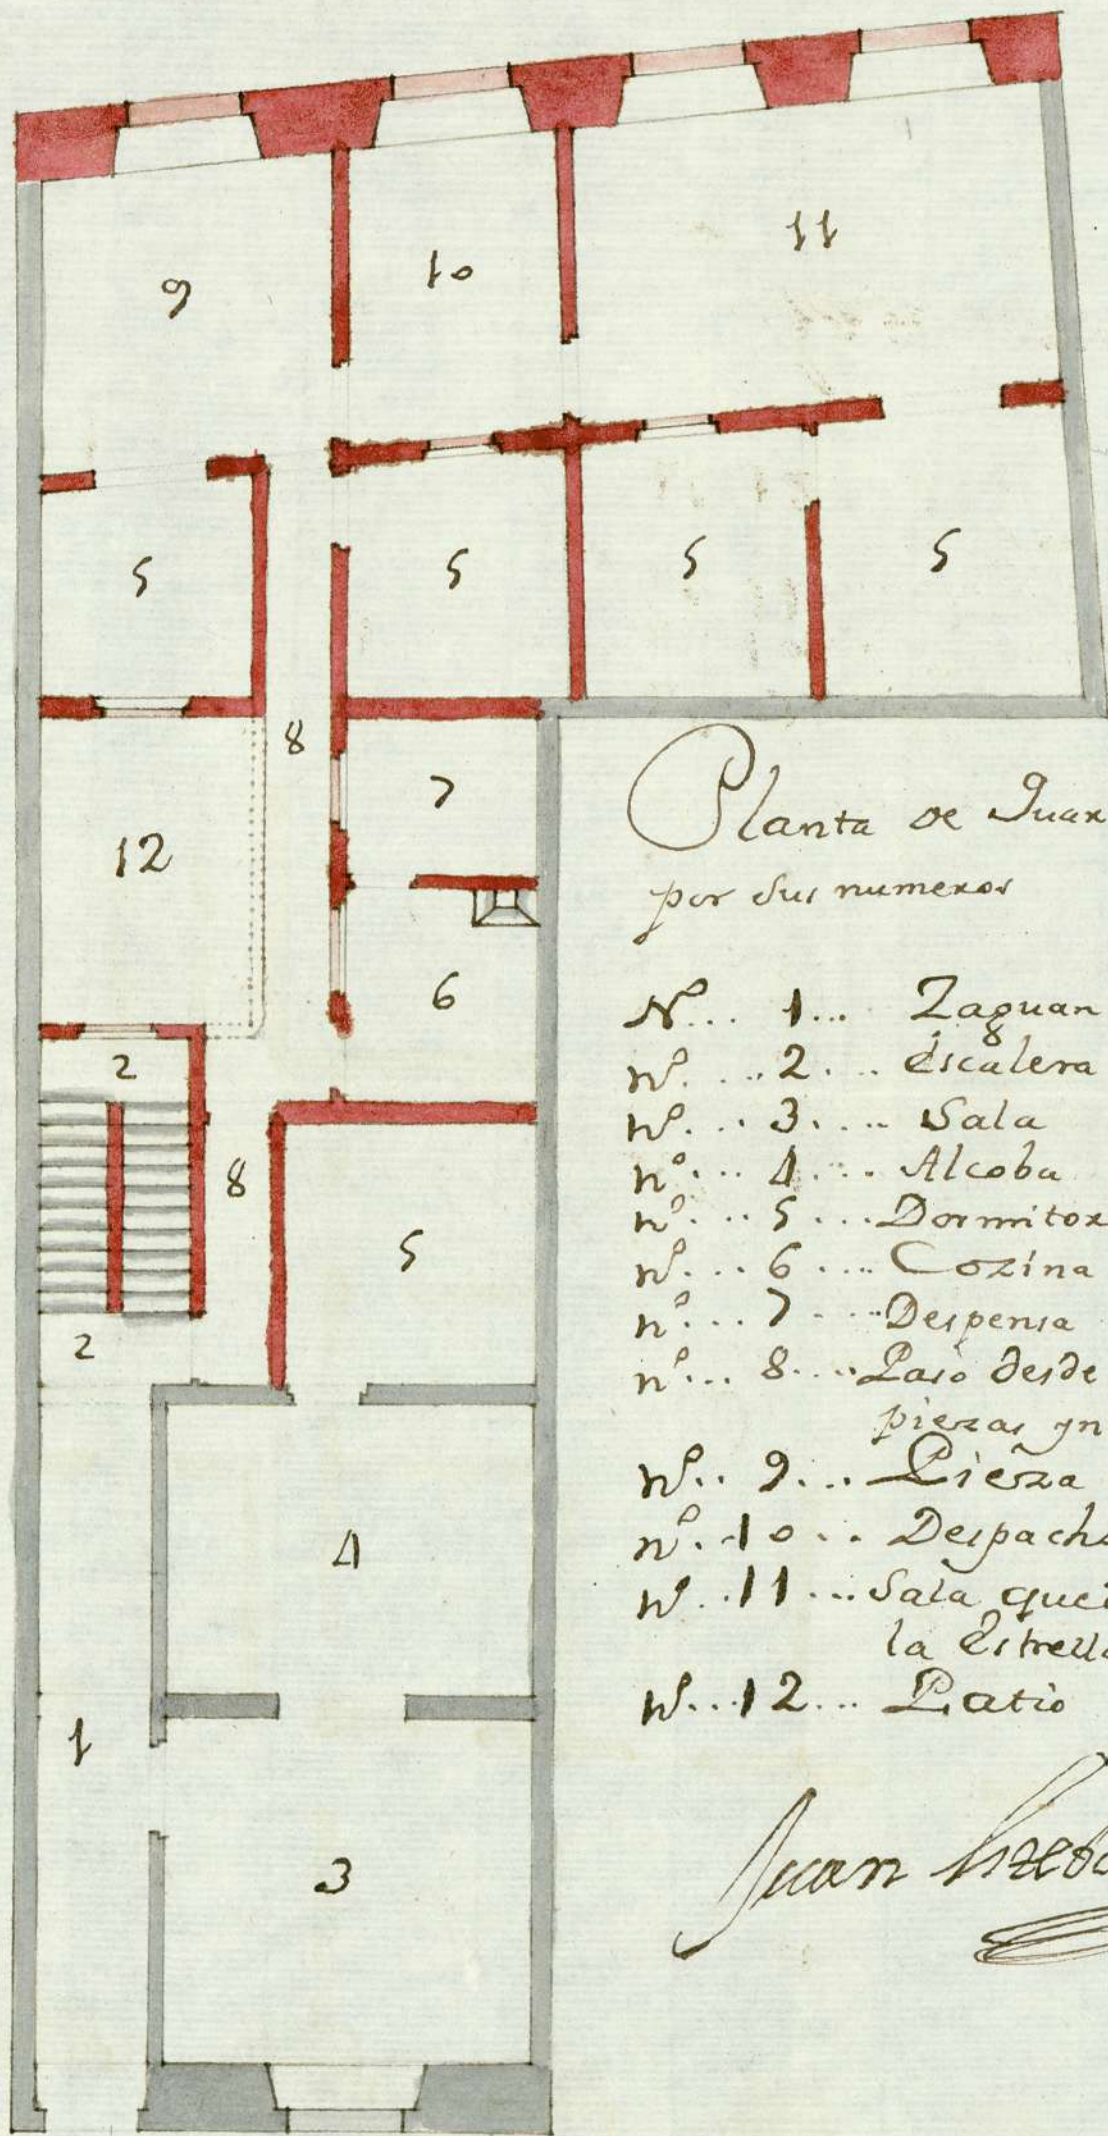 11
10
9
5
5
5
5
8
7
12
6
2
8
5
2
4
1
3
Planta de Quar
por sus numeros
N.º... 1... Zaguan
nº... 2... Escalera
nº... 3.... Sala
nº... 4.... Alcoba
nº... 5... Dormitor
nº... 6.... Cozina
nº... 7.... Despensa
nº... 8.... Paso desde
piezas yn
nº.. 9... Pieza
nº. 10... Despacho
nº.. 11... Sala que
la Estrella
nº... 12... Patio
Juan